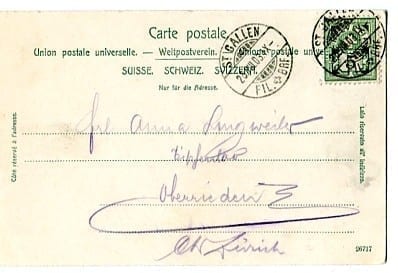 Carte postale.
Union postale universelle. — Weltpostverein. — Unione postale universale.
SUISSE. SCHWEIZ. SVIZZERA.
Nur für die Adresse.
ST GALLEN
FIL. BRF.
Côté réservé à l'adresse.
Lato riservato all' indirizzo.
Frl. Anna
Oberrieden
Ct. Zürich
26717